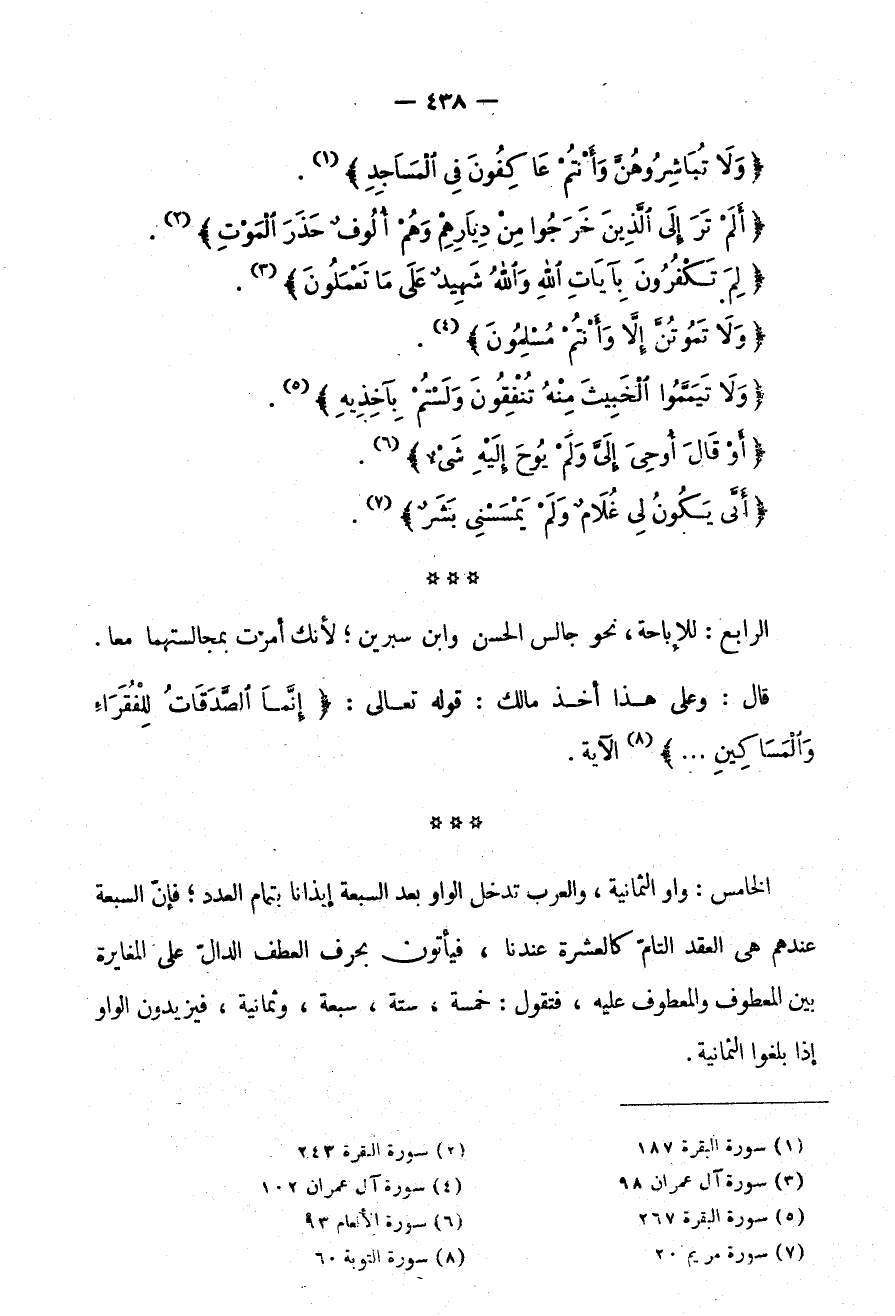 — ٤٣٨ —
﴿ وَلَا تُبَاشِرُوهُنَّ وَأَنْتُمْ عَاكِفُونَ فِي ٱلْمَسَاجِدِ ﴾ (١) .
﴿ أَلَمْ تَرَ إِلَى ٱلَّذِينَ خَرَجُوا مِنْ دِيَارِهِمْ وَهُمْ أُلُوفٌ حَذَرَ ٱلْمَوْتِ ﴾ (٢) .
﴿ لِمَ تَكْفُرُونَ بِآيَاتِ ٱللهِ وَٱللهُ شَهِيدٌ عَلَى مَا تَعْمَلُونَ ﴾ (٣) .
﴿ وَلَا تَمُوتُنَّ إِلَّا وَأَنْتُمْ مُسْلِمُونَ ﴾ (٤) .
﴿ وَلَا تَيَمَّمُوا ٱلْخَبِيثَ مِنْهُ تُنْفِقُونَ وَلَسْتُمْ بِآخِذِيهِ ﴾ (٥) .
﴿ أَوْ قَالَ أُوحِيَ إِلَيَّ وَلَمْ يُوحَ إِلَيْهِ شَىْءٌ ﴾ (٦) .
﴿ أَنَّى يَكُونُ لِي غُلَامٌ وَلَمْ يَمْسَسْنِي بَشَرٌ ﴾ (٧) .
* * *
الرابع : للإباحة ، نحو جالس الحسن وابن سيرين ؛ لأنك أمرت بمجالستهما معا .
قال : وعلى هـذا أخـذ مالك : قوله تعـالى : ﴿ إِنَّمَـا ٱلصَّدَقَاتُ لِلْفُقَرَاءِ
وَٱلْمَسَاكِينِ ... ﴾ (٨) الآية .
* * *
الخامس : واو الثمانية ، والعرب تدخل الواو بعد السبعة إيذانا بتمام العدد ؛ فإنّ السبعة
عندهم هى العقد التامّ كالعشرة عندنا ، فيأتون بحرف العطف الدالّ على المغايرة
بين المعطوف والمعطوف عليه ، فتقول : خمسة ، ستة ، سبعة ، وثمانية ، فيزيدون الواو
إذا بلغوا الثمانية .
(١) سورة البقرة ١٨٧ (٢) سورة البقرة ٢٤٣
(٣) سورة آل عمران ٩٨ (٤) سورة آل عمران ١٠٢
(٥) سورة البقرة ٢٦٧ (٦) سورة الأنعام ٩٣
(٧) سورة مريم ٢٠ (٨) سورة التوبة ٦٠